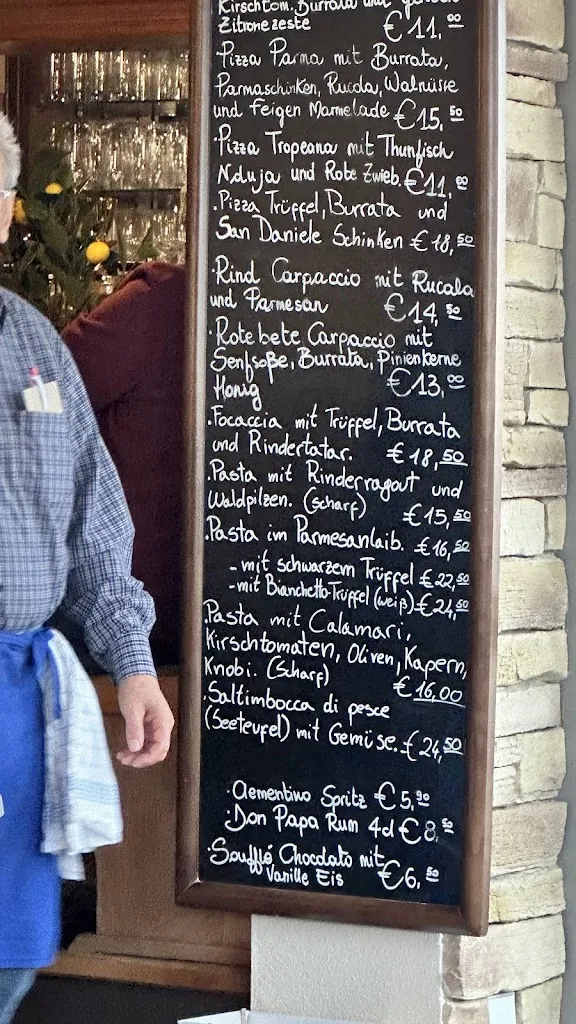 Kirschtom. Burrata und
Zitronezeste €11,00
·Pizza Parma mit Burrata,
Parmaschinken, Rucola, Walnüsse
und Feigen Marmelade €15,50
·Pizza Tropeana mit Thunfisch
Nduja und Rote Zwieb. €11,00
·Pizza Trüffel, Burrata und
San Daniele Schinken €18,50
·Rind Carpaccio mit Rucola
und Parmesan €14,50
·Rote bete Carpaccio mit
Senfsoße, Burrata, Pinienkerne
Honig €13,00
·Focaccia mit Trüffel, Burrata
und Rindertatar. €18,50
·Pasta mit Rinderragout und
Waldpilzen. (scharf) €15,50
·Pasta im Parmesanlaib. €16,50
- mit schwarzem Trüffel €22,50
- mit Bianchetto-Trüffel (weiß) €24,50
·Pasta mit Calamari,
Kirschtomaten, Oliven, Kapern,
Knobi. (scharf) €16,00
·Saltimbocca di pesce
(Seeteufel) mit Gemüse. €24,50
·Clementino Spritz €5,90
·Don Papa Rum 4cl €8,50
·Soufflé Chocolato mit
Vanille Eis €6,50